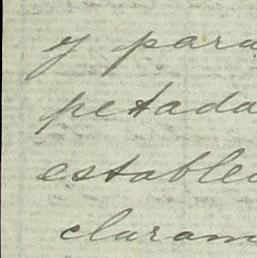 y para
petada
estable
claram